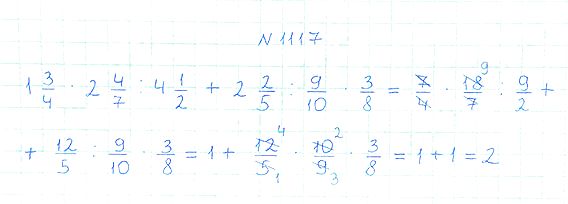 № 1117
1 3/4 · 2 4/7 : 4 1/2 + 2 2/5 : 9/10 · 3/8 = 7/4 · 18/7 9 : 9/2 +
+ 12/5 : 9/10 · 3/8 = 1 + 12 4/5 1 · 10 2/9 3 · 3/8 = 1 + 1 = 2